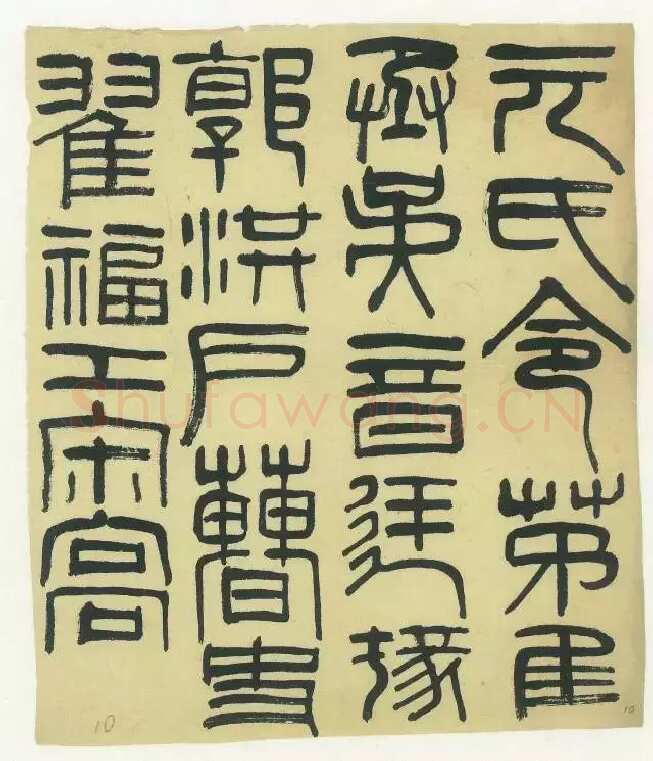 元氏令茅
丞吳音廷掾
郭洪戶曹史
翟福工宋高
Shufawang.CN
10
10